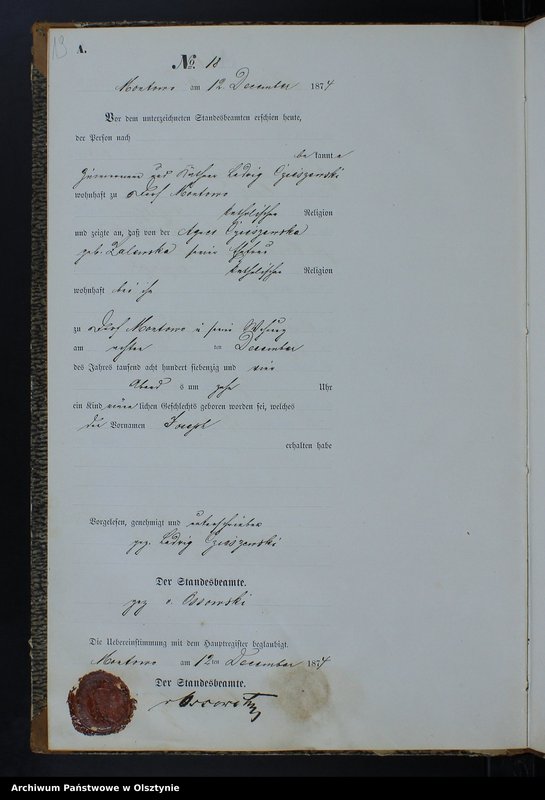 13
A.
No. 18
Montowo am 12 December 1874
Vor dem unterzeichneten Standesbeamten erschien heute,
der Person nach
be kannt e
Ludwig
wohnhaft zu Dorf Montowo
katholischer Religion
und zeigte an, daß von der Agnes
geb. Zalewska seine Ehefrau
katholischer Religion
wohnhaft bei ihm
zu Dorf Montowo in seiner Wohnung
am achten ten December
des Jahres tausend acht hundert siebenzig und vier
Abend s um zehn Uhr
ein Kind männ lichen Geschlechts geboren worden sei, welches
die Vornamen Joseph
erhalten habe
Vorgelesen, genehmigt und unterschrieben
gez. Ludwig
Der Standesbeamte.
gez v. Ossowski
Die Uebereinstimmung mit dem Hauptregister beglaubigt.
Montowo am 12 ten December 1874
Der Standesbeamte.
v Ossowski
Archiwum Państwowe w Olsztynie